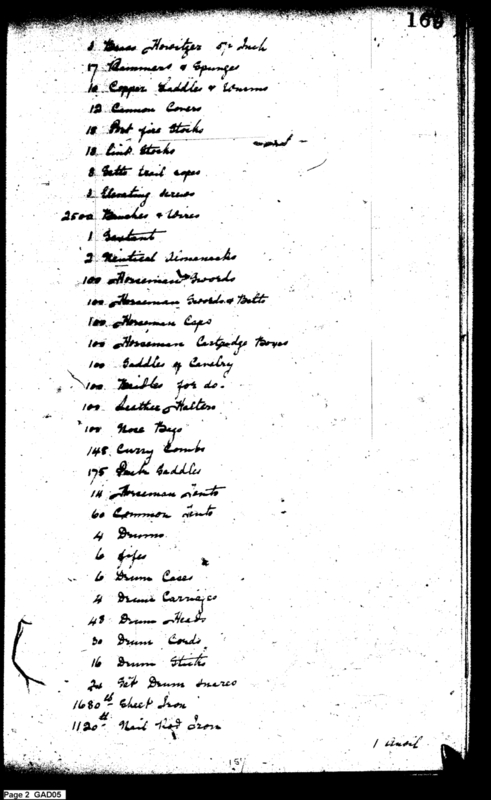 169
3 Brass Howitzer 5½ Inch
17 Rammers & Spunges
10 Copper Laddles & Worms
12 Cannon Covers
18 Port fire Stocks
18 Lint Stocks
8 Setts trail ropes
3 Elevating screws
2500 Brushes & Wires
1 Sextant
2 Nautical Almanacks
100 Horseman Swords
100 Horseman Swords Belts
100 Horseman Caps
100 Horseman Cartridge Boxes
100 Saddles of Cavalry
100 Bridles for do.
100 Leather Halters
100 Nose Bags
148 Curry Combs
175 Pack Saddles
14 Horseman Tents
60 Common Tents
4 Drums
6 fifes
6 Drum Cases
4 Drum Carriages
48 Drum Heads
30 Drum Cords
16 Drum Sticks
24 Set Drum snares
1680 lb Sheet Iron
1120 lb Nail Rod Iron
1 Anvil
Page 2 GAD05